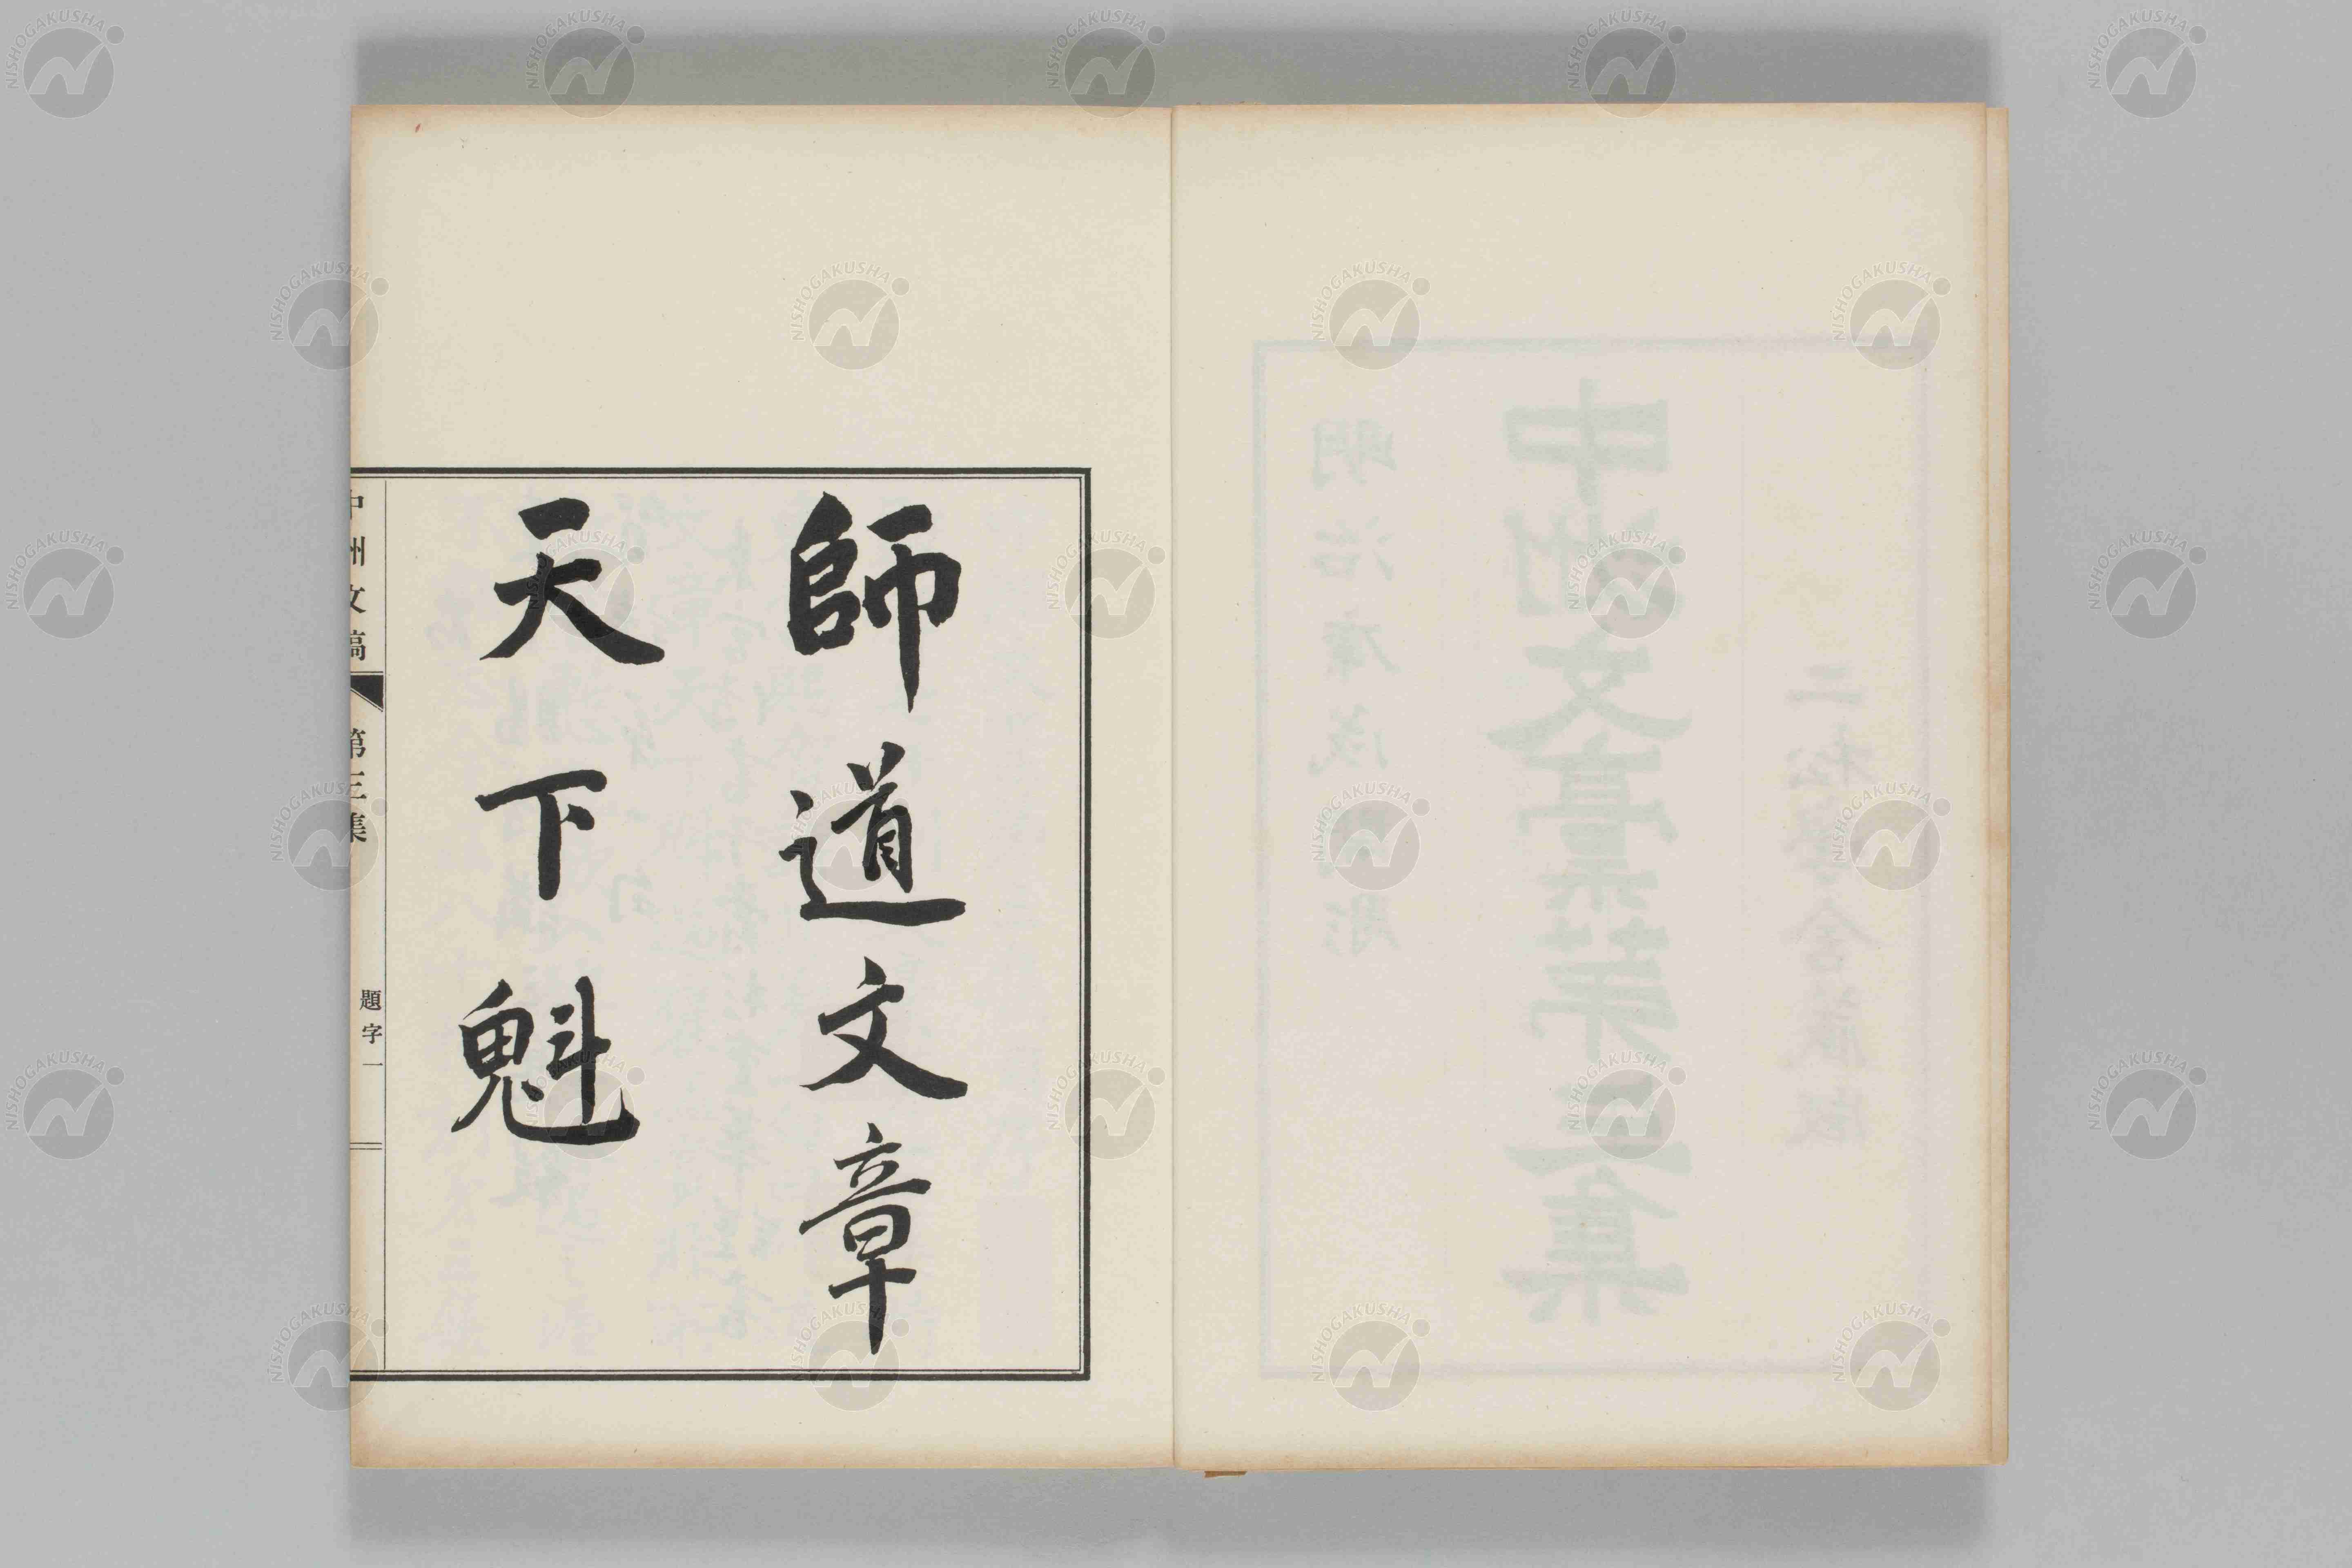 師道文章
天下魁
中州文稿 第三集 題字一